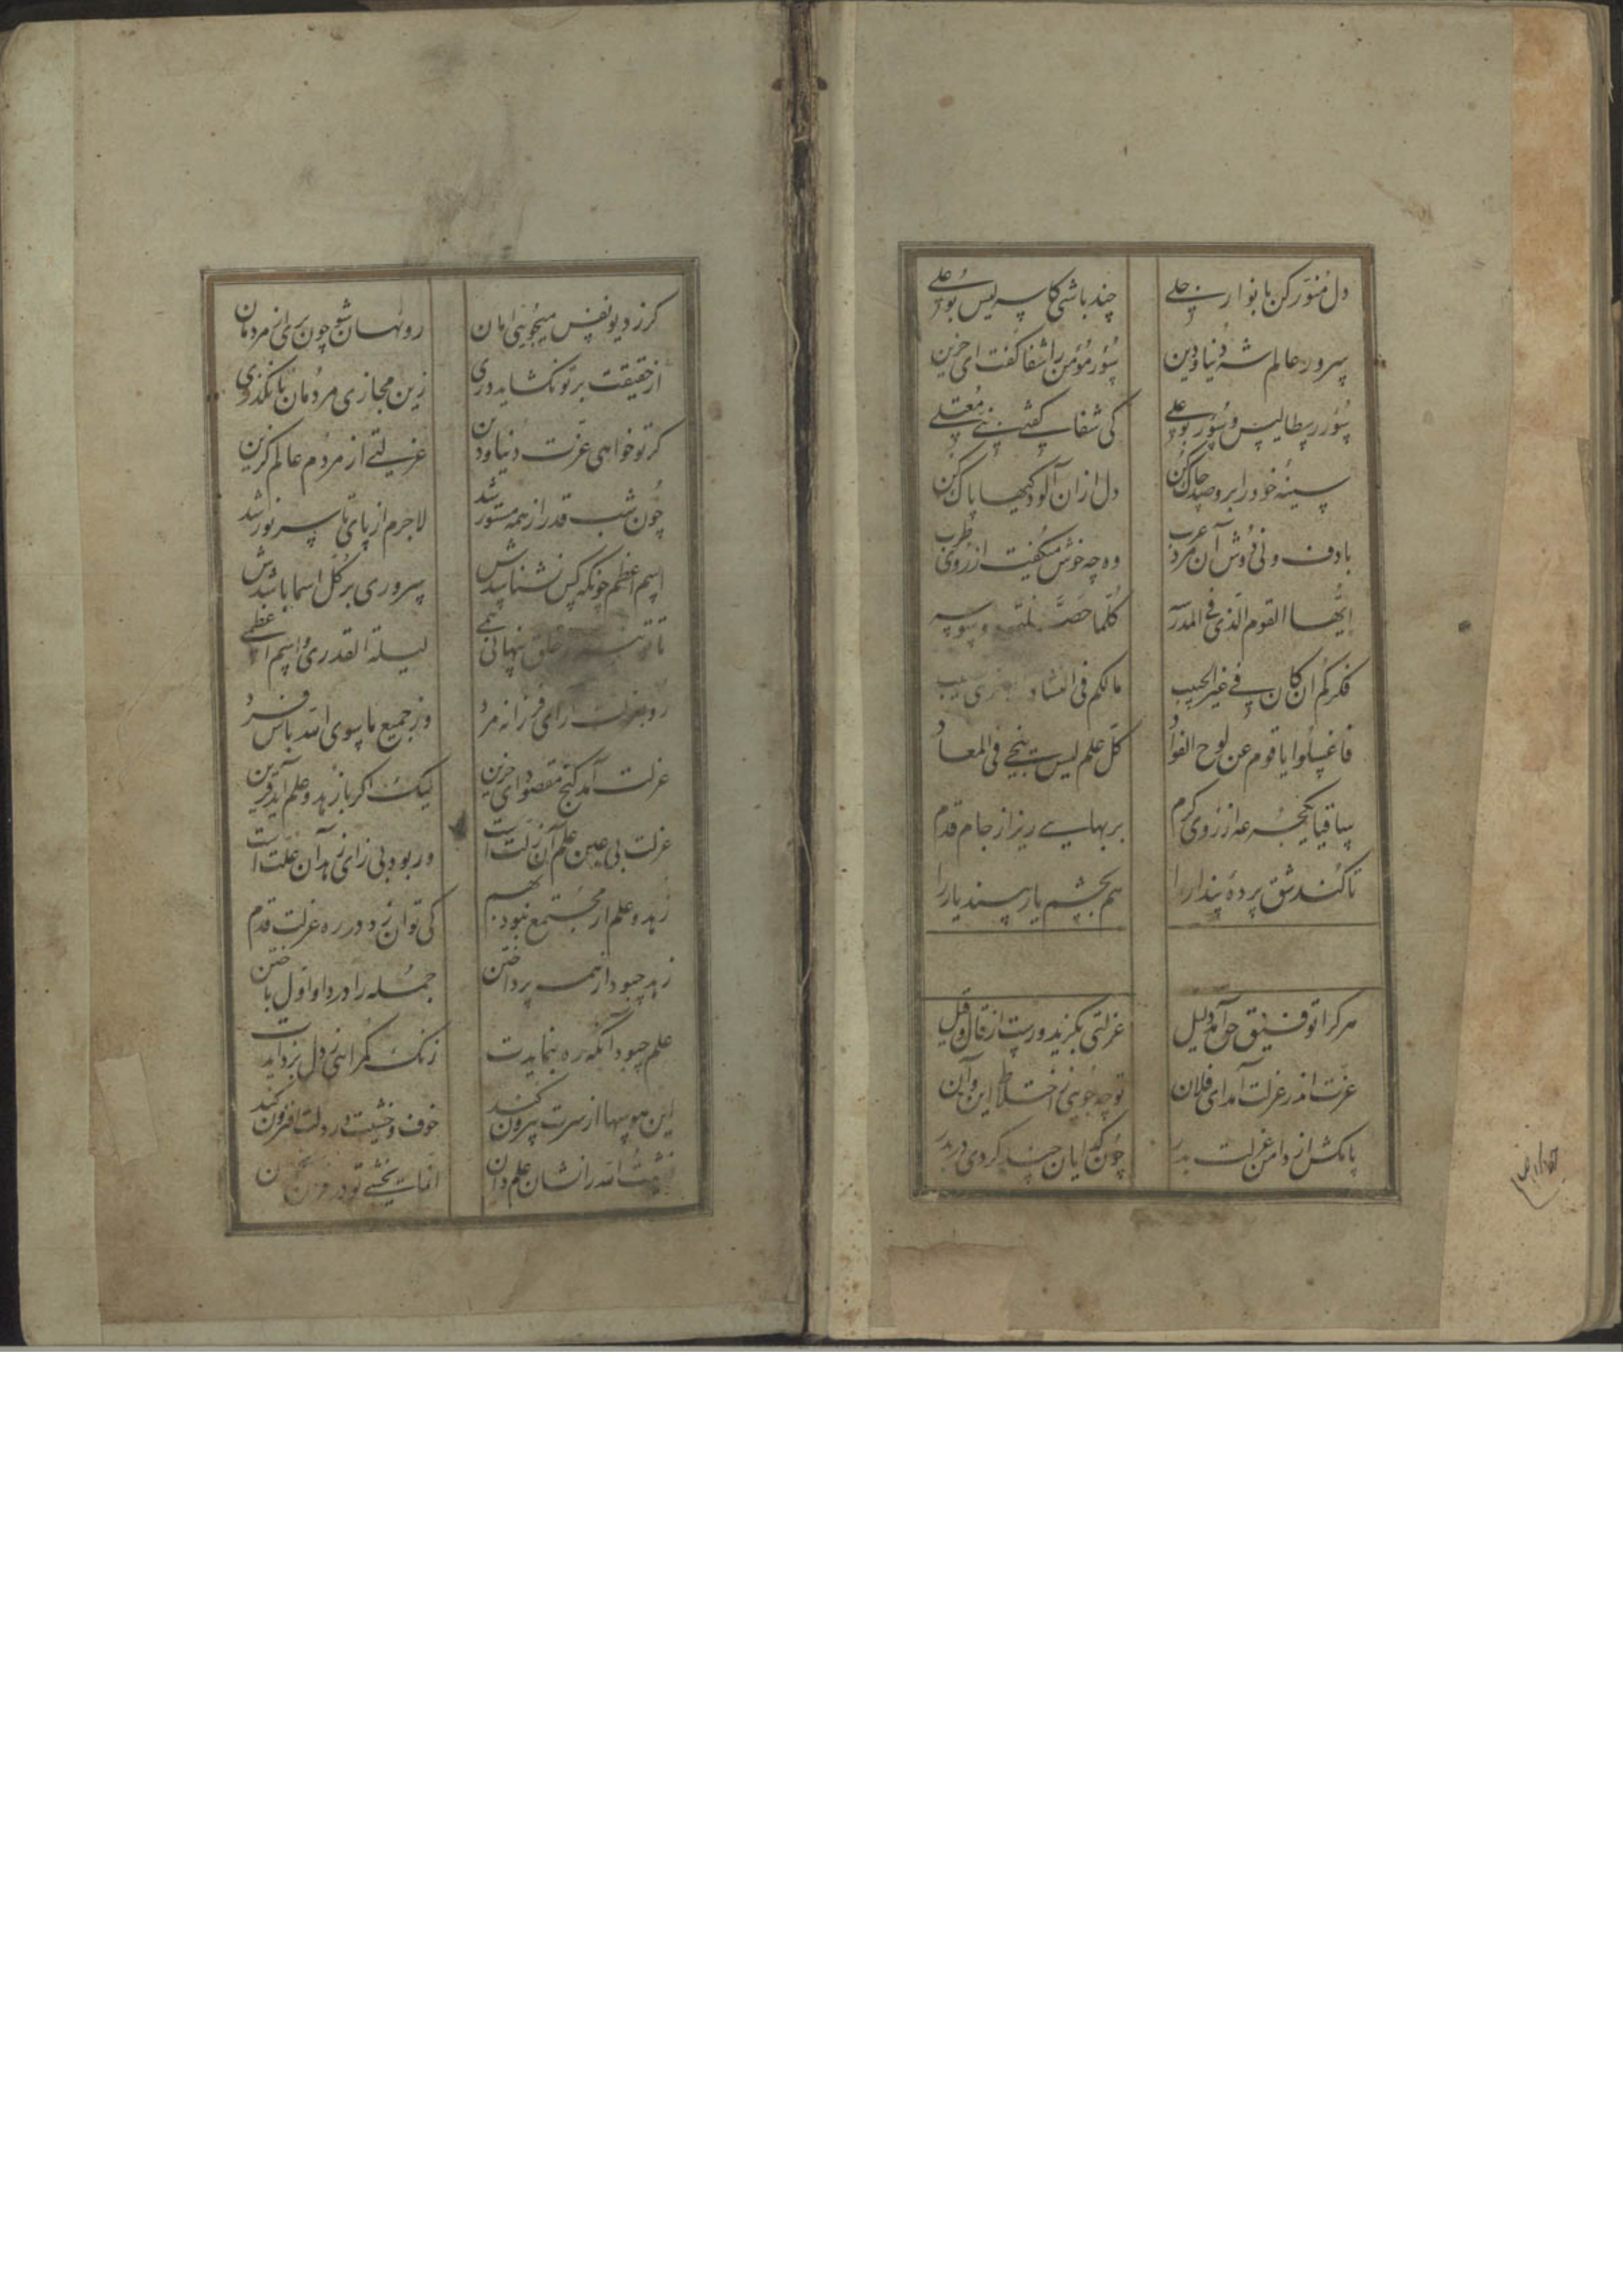 دل منور کن بانوار جلی چند باشی کاسه لیس بوعلی
سرور عالم شه دنیا و دین سؤر مؤمن را شفا گفت ای حزین
سؤر رسطالیس و سؤر بوعلی کی شفا گفته نبی منجلی
سینهٔ خود را برو صد چاک کن دل ازان آلودکیها پاک کن
با دف و نی دوش آن مرد عرب وه چه خوش میکفت از روی طرب
ایها القوم الذی فی المدرسه کلما حصلتموه وسوسه
فکرکم ان کان فی غیر الحبیب مالکم فی النشاة الاخری نصیب
فاغسلوا یا قوم عن لوح الفواد کل علم لیس ینجی فی المعاد
ساقیا یکجرعه از روی کرم بر بهایی ریز از جام قدم
تا کند شق پردهٔ پندار را هم بچشم یار بیند یار را
هر کرا توفیق حق آمد دلیل عزلتی بگزید و رست از قال و قیل
عزت اندر عزلت آمد ای فلان تو چه جویی ز اختلاط این و آن
پا مکش از دامن عزلت بدر چون کدایان چند کردی در بدر
کر ز دیو نفس میجویی امان رو نهان شو چون پری از مردمان
از حقیقت بر تو نکشاید دری زین مجازی مردمان تا نکذری
کر تو خواهی عزت دنیا و دین عزلتی از مردم عالم کزین
چون شب قدر از همه مستور شد لاجرم از پای تا سر نور شد
اسم اعظم چونکه کس نشناسدش سروری بر کل اسما باشدش
تا تو نیز از خلق پنهانی همی لیلة القدری و اسم اعظمی
رو بعزلت آر ای فرزانه مرد وز جمیع ما سوی الله باش فرد
عزلت آمد کنج مقصود ای حزین لیک اکر با زهد و علم آید قرین
عزلت بی عین علم آن زلت است ور بود بی زای زهد آن علت است
زهد و علم ار مجتمع نبود بهم کی توان زد در ره عزلت قدم
زهد چبود از همه پرداختن جمله را در داو اول باختن
علم چبود آنکه ره بنمایدت زنک کمراهی ز دل بزدایدت
این هوسها از سرت بیرون کند خوف و خشیت در دلت افزون کند
خشیت الله را نشان علم دان انما یخشی تو در قرآن بخوان